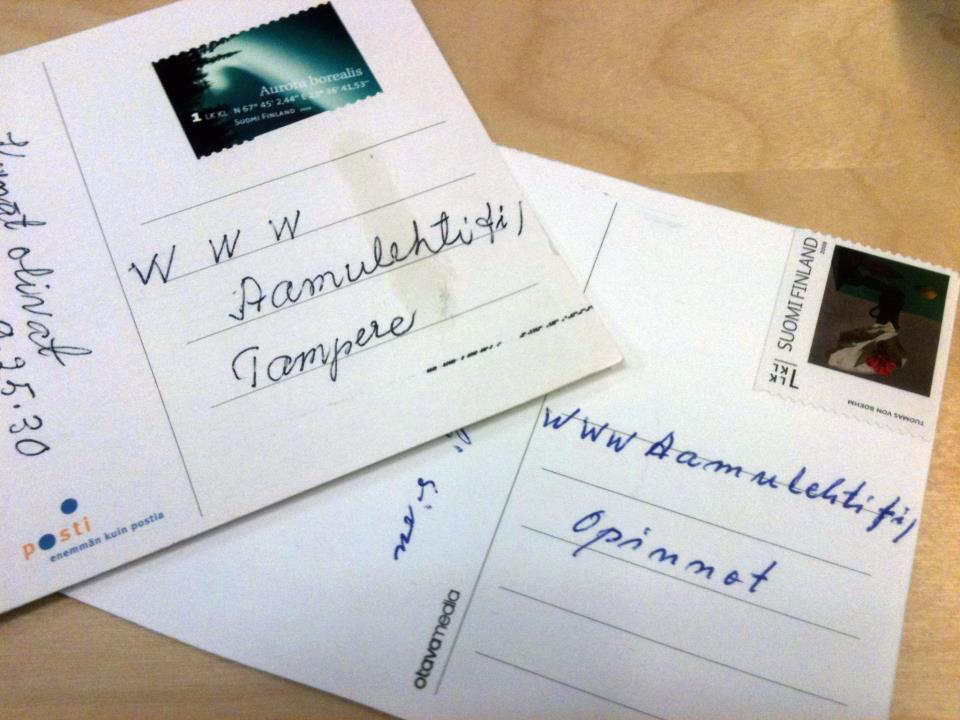 Aurora borealis
1 LK KL N 67° 45' 2,44" E 23° 36' 41,53"
SUOMI FINLAND
W W W
Aamulehti.fi/
Tampere
olivat
9.25.30
posti
enemmän kuin postia
SUOMI FINLAND
1 LK
KL
TUOMAS VON BOEHM
WWW Aamulehti.fi/
opinnot
otavamedia